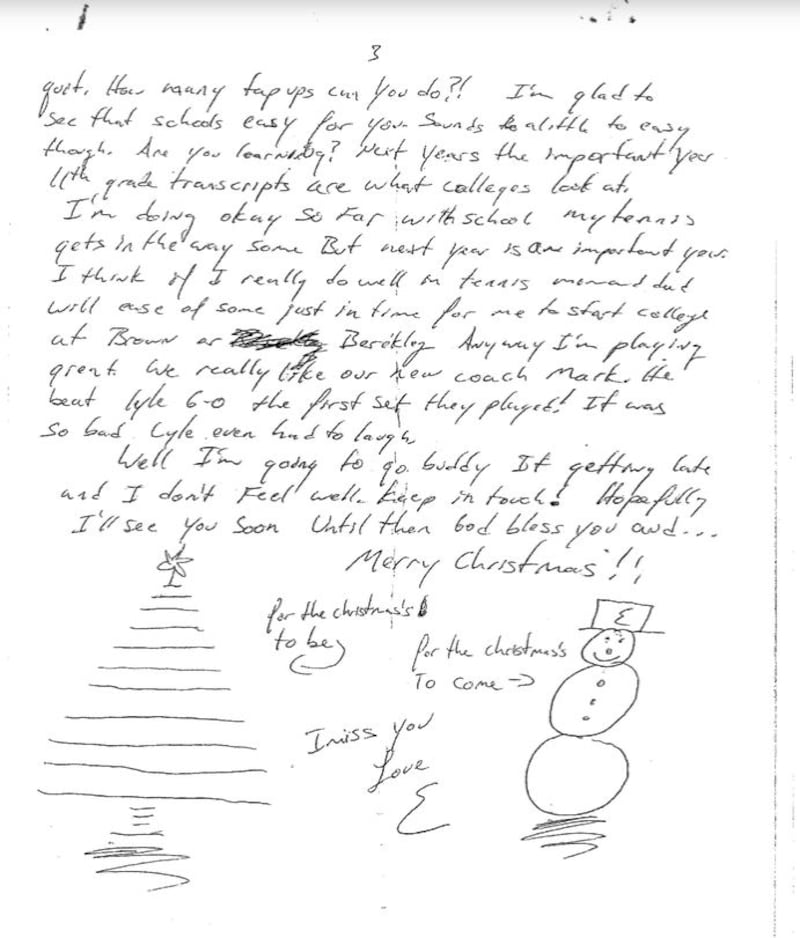 3
quit. How many tap ups can you do?! I'm glad to
see that schools easy for you. Sounds to alittle to easy
though. Are you learning? Next years the important year
11th grade transcripts are what colleges look at.
I'm doing okay so far with school my tennis
gets in the way some But next year is an important year.
I think if I really do well in tennis mom and dad
will ease of some just in time for me to start college
at Brown or Berekley Anyway I'm playing
great. We really like our new coach Mark. He
beat lyle 6-0 the first set they played! It was
so bad Lyle even had to laugh.
Well I'm going to go buddy It getting late
and I don't Feel well. Keep in touch! Hopefully
I'll see you soon Until then God bless you and...
Merry Christmas!!
for the christmas's
to be
for the christmas's
To come →
E
I miss you
Love
E